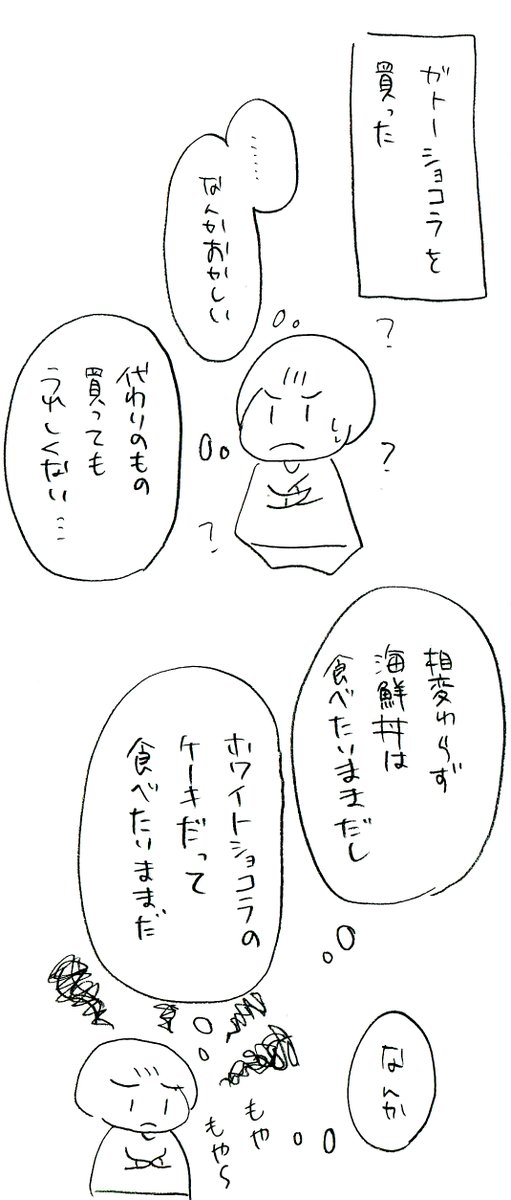 ガトーショコラを
買った
………
なんかおかしい
?
代わりのもの
買っても
うれしくない…
?
?
相変わらず
海鮮丼は
食べたいままだし
ホワイトショコラの
ケーキだって
食べたいままだ
なんか
もや
もや〜